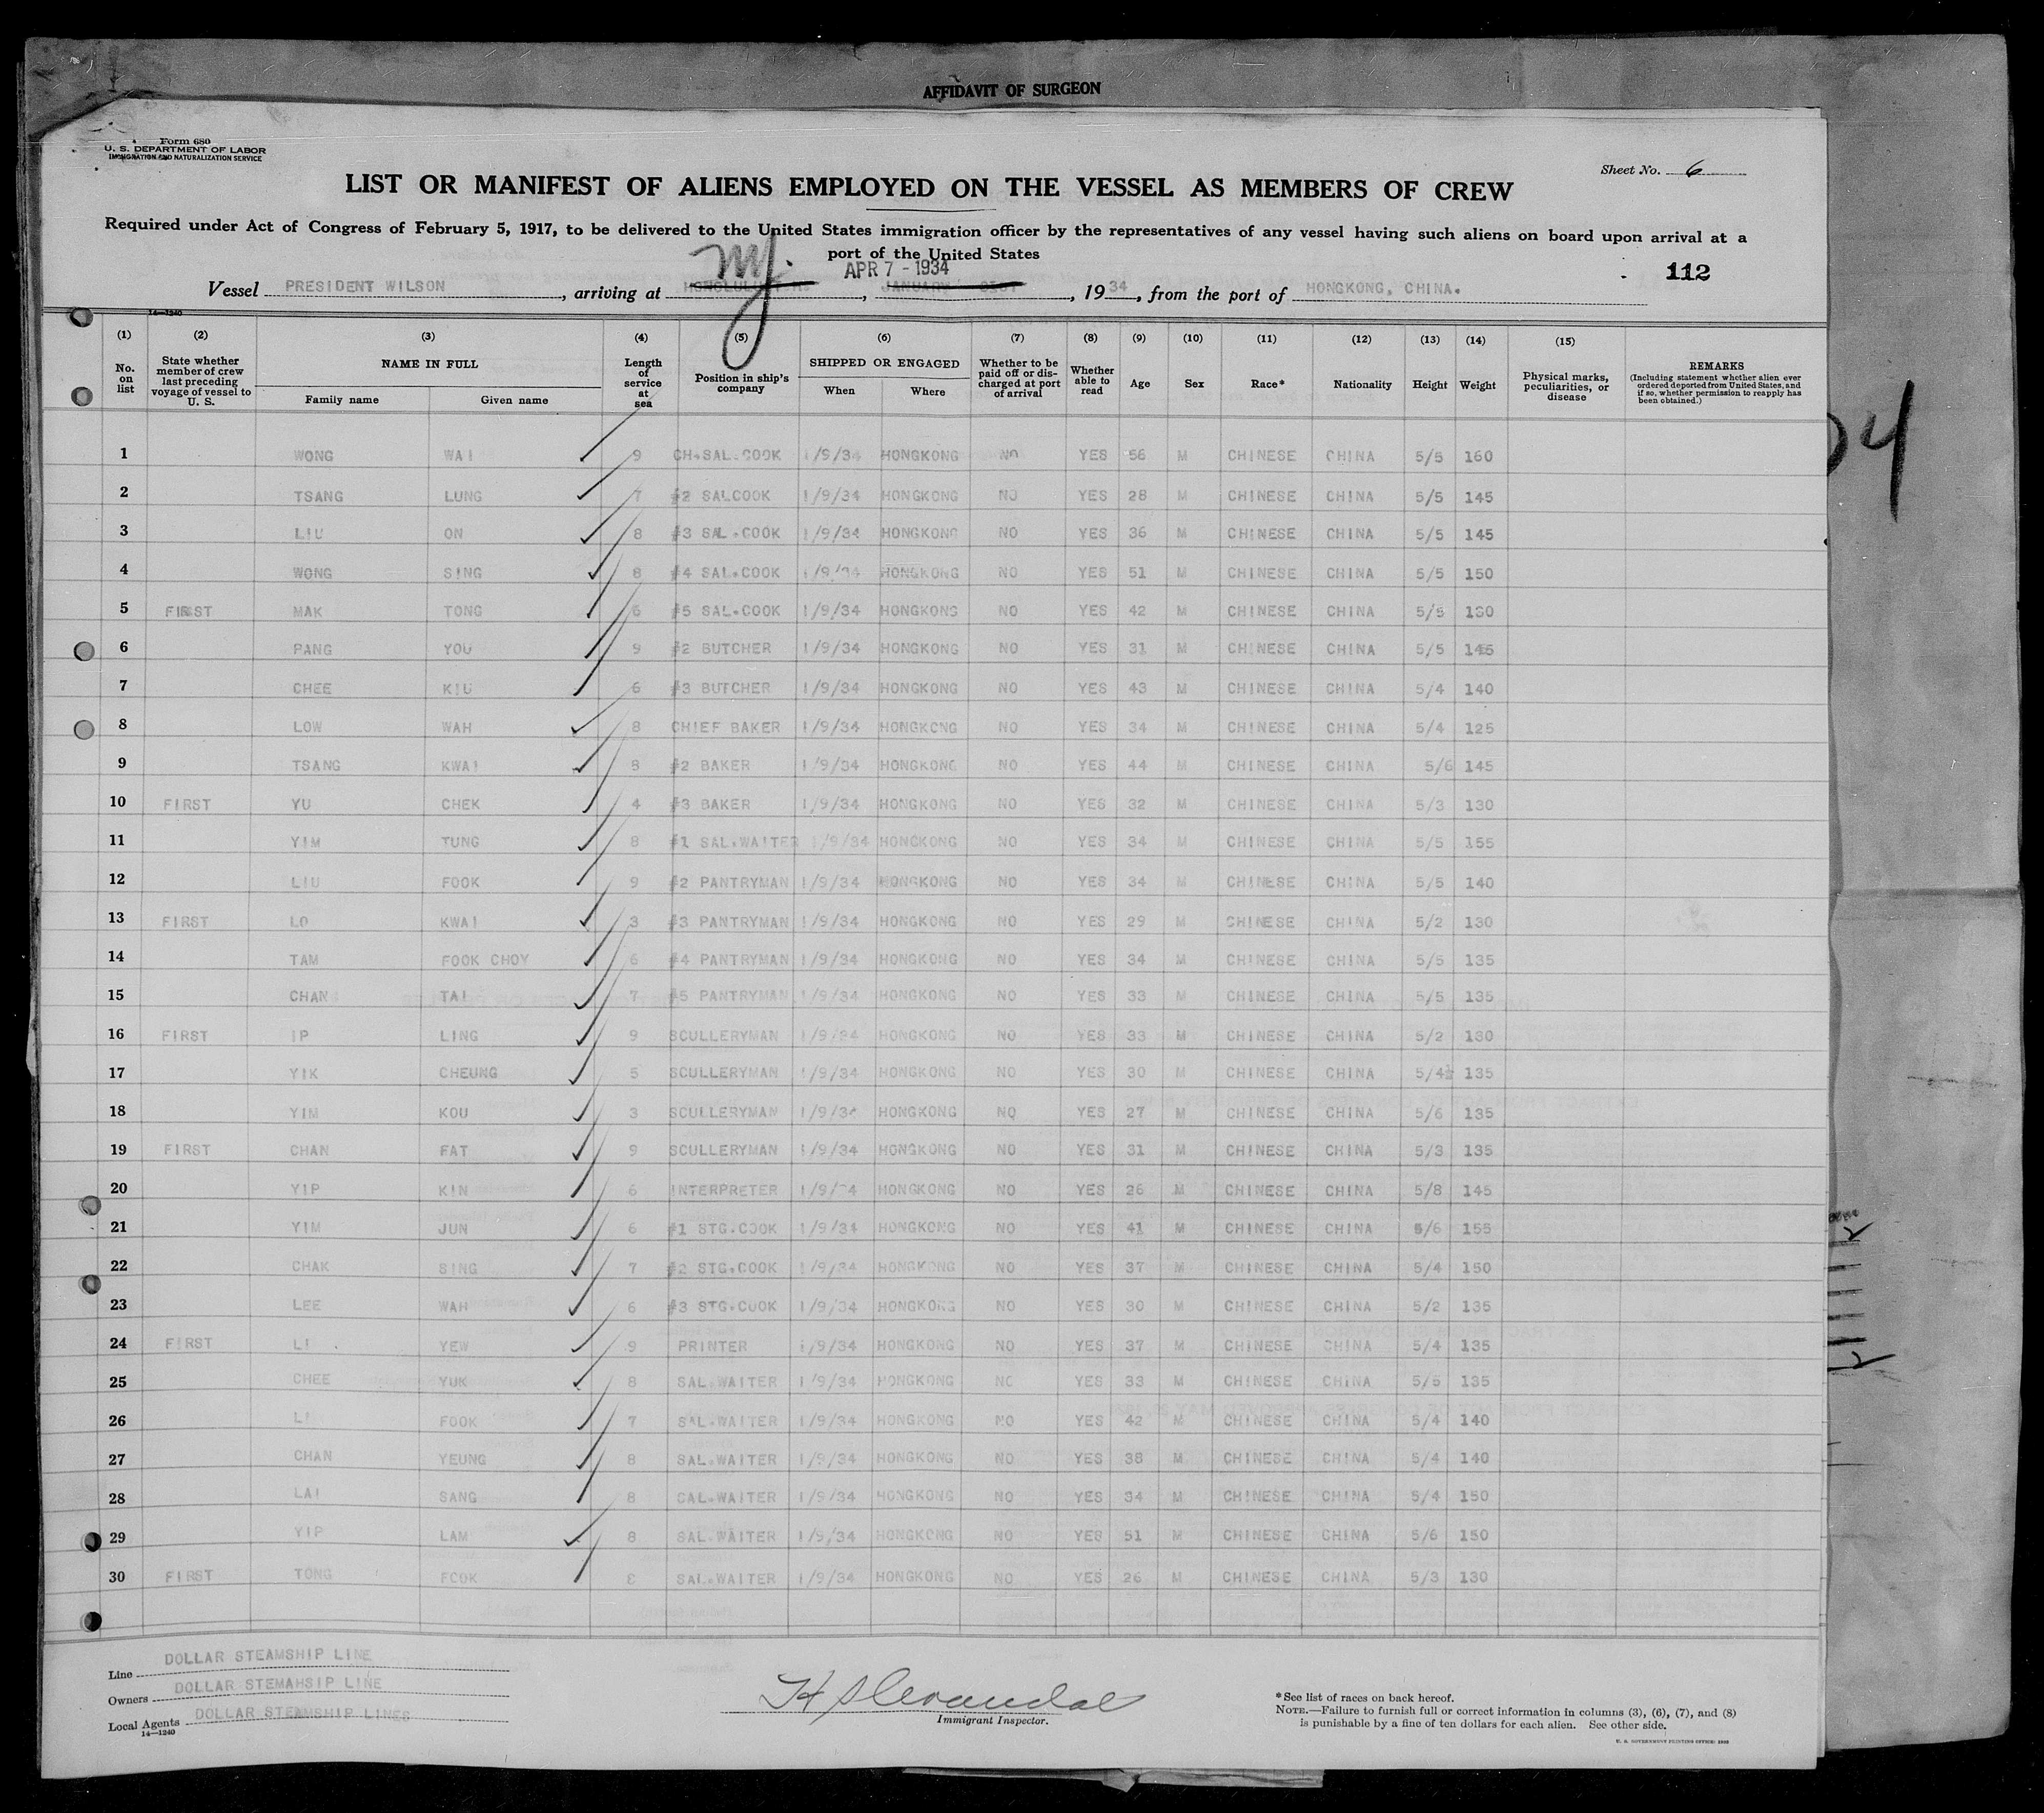 AFFIDAVIT OF SURGEON
Form 680
U. S. DEPARTMENT OF LABOR
IMMIGRATION AND NATURALIZATION SERVICE
Sheet No. 6
LIST OR MANIFEST OF ALIENS EMPLOYED ON THE VESSEL AS MEMBERS OF CREW
Required under Act of Congress of February 5, 1917, to be delivered to the United States immigration officer by the representatives of any vessel having such aliens on board upon arrival at a
port of the United States
APR 7 - 1934
112
Vessel PRESIDENT WILSON, arriving at HONOLULU N.Y., JANUARY 31ST, 1934, from the port of HONGKONG, CHINA.
14—1240
(1) (2) (3) (4) (5) (6) (7) (8) (9) (10) (11) (12) (13) (14) (15)
No. on list State whether member of crew last preceding voyage of vessel to U. S. NAME IN FULL Family name Given name Length of service at sea Position in ship's company SHIPPED OR ENGAGED When Where Whether to be paid off or discharged at port of arrival Whether able to read Age Sex Race* Nationality Height Weight Physical marks, peculiarities, or disease REMARKS (Including statement whether alien ever ordered deported from United States, and if so, whether permission to reapply has been obtained.)
1 WONG WAI 9 CH.SAL.COOK 1/9/34 HONGKONG NO YES 56 M CHINESE CHINA 5/5 160
2 TSANG LUNG 7 #2 SALCOOK 1/9/34 HONGKONG NO YES 28 M CHINESE CHINA 5/5 145
3 LIU ON 8 #3 SAL.COOK 1/9/34 HONGKONG NO YES 36 M CHINESE CHINA 5/5 145
4 WONG SING 8 #4 SAL.COOK 1/9/34 HONGKONG NO YES 51 M CHINESE CHINA 5/5 150
5 FIRST MAK TONG 6 #5 SAL.COOK 1/9/34 HONGKONG NO YES 42 M CHINESE CHINA 5/5 130
6 PANG YOU 9 #2 BUTCHER 1/9/34 HONGKONG NO YES 31 M CHINESE CHINA 5/5 145
7 CHEE KIU 6 #3 BUTCHER 1/9/34 HONGKONG NO YES 43 M CHINESE CHINA 5/4 140
8 LOW WAH 8 CHIEF BAKER 1/9/34 HONGKONG NO YES 34 M CHINESE CHINA 5/4 125
9 TSANG KWAI 8 #2 BAKER 1/9/34 HONGKONG NO YES 44 M CHINESE CHINA 5/6 145
10 FIRST YU CHEK 4 #3 BAKER 1/9/34 HONGKONG NO YES 32 M CHINESE CHINA 5/3 130
11 YIM TUNG 8 #1 SAL.WAITER 1/9/34 HONGKONG NO YES 34 M CHINESE CHINA 5/5 155
12 LIU FOOK 9 #2 PANTRYMAN 1/9/34 HONGKONG NO YES 34 M CHINESE CHINA 5/5 140
13 FIRST LO KWAI 3 #3 PANTRYMAN 1/9/34 HONGKONG NO YES 29 M CHINESE CHINA 5/2 130
14 TAM FOOK CHOY 6 #4 PANTRYMAN 1/9/34 HONGKONG NO YES 34 M CHINESE CHINA 5/5 135
15 CHAN TAI 7 #5 PANTRYMAN 1/9/34 HONGKONG NO YES 33 M CHINESE CHINA 5/5 135
16 FIRST IP LING 9 SCULLERYMAN 1/9/34 HONGKONG NO YES 33 M CHINESE CHINA 5/2 130
17 YIK CHEUNG 5 SCULLERYMAN 1/9/34 HONGKONG NO YES 30 M CHINESE CHINA 5/4½ 135
18 YIM KOU 3 SCULLERYMAN 1/9/34 HONGKONG NO YES 27 M CHINESE CHINA 5/6 135
19 FIRST CHAN FAT 9 SCULLERYMAN 1/9/34 HONGKONG NO YES 31 M CHINESE CHINA 5/3 135
20 YIP KIN 6 INTERPRETER 1/9/34 HONGKONG NO YES 26 M CHINESE CHINA 5/8 145
21 YIM JUN 6 #1 STG.COOK 1/9/34 HONGKONG NO YES 41 M CHINESE CHINA 5/6 155
22 CHAK SING 7 #2 STG.COOK 1/9/34 HONGKONG NO YES 37 M CHINESE CHINA 5/4 150
23 LEE WAH 6 #3 STG.COOK 1/9/34 HONGKONG NO YES 30 M CHINESE CHINA 5/2 135
24 FIRST LI YEW 9 PRINTER 1/9/34 HONGKONG NO YES 37 M CHINESE CHINA 5/4 135
25 CHEE YUK 8 SAL.WAITER 1/9/34 HONGKONG NO YES 33 M CHINESE CHINA 5/5 135
26 LI FOOK 7 SAL.WAITER 1/9/34 HONGKONG NO YES 42 M CHINESE CHINA 5/4 140
27 CHAN YEUNG 8 SAL.WAITER 1/9/34 HONGKONG NO YES 38 M CHINESE CHINA 5/4 140
28 LAI SANG 8 CAL.WAITER 1/9/34 HONGKONG NO YES 34 M CHINESE CHINA 5/4 150
29 YIP LAM 8 SAL.WAITER 1/9/34 HONGKONG NO YES 51 M CHINESE CHINA 5/6 150
30 FIRST TONG FOOK 8 SAL.WAITER 1/9/34 HONGKONG NO YES 26 M CHINESE CHINA 5/3 130
Line DOLLAR STEAMSHIP LINE
Owners DOLLAR STEMAHSIP LINE
Local Agents DOLLAR STEAMSHIP LINES
14—1240
Immigrant Inspector.
*See list of races on back hereof.
NOTE.—Failure to furnish full or correct information in columns (3), (6), (7), and (8)
is punishable by a fine of ten dollars for each alien. See other side.
U. S. GOVERNMENT PRINTING OFFICE: 1932